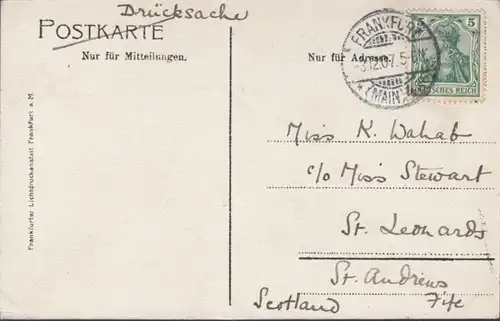 Drücksache
POSTKARTE
Nur für Mitteilungen.
Nur für Adresse.
FRANKFURT
12.07.5
(MAIN)
5 5
DEUTSCHES REICH
Miss K. Wahab
c/o Miss Stewart
St. Leonards
St. Andrews
Scotland Fife
Frankfurter Lichtdruckanstalt Frankfurt a. M.